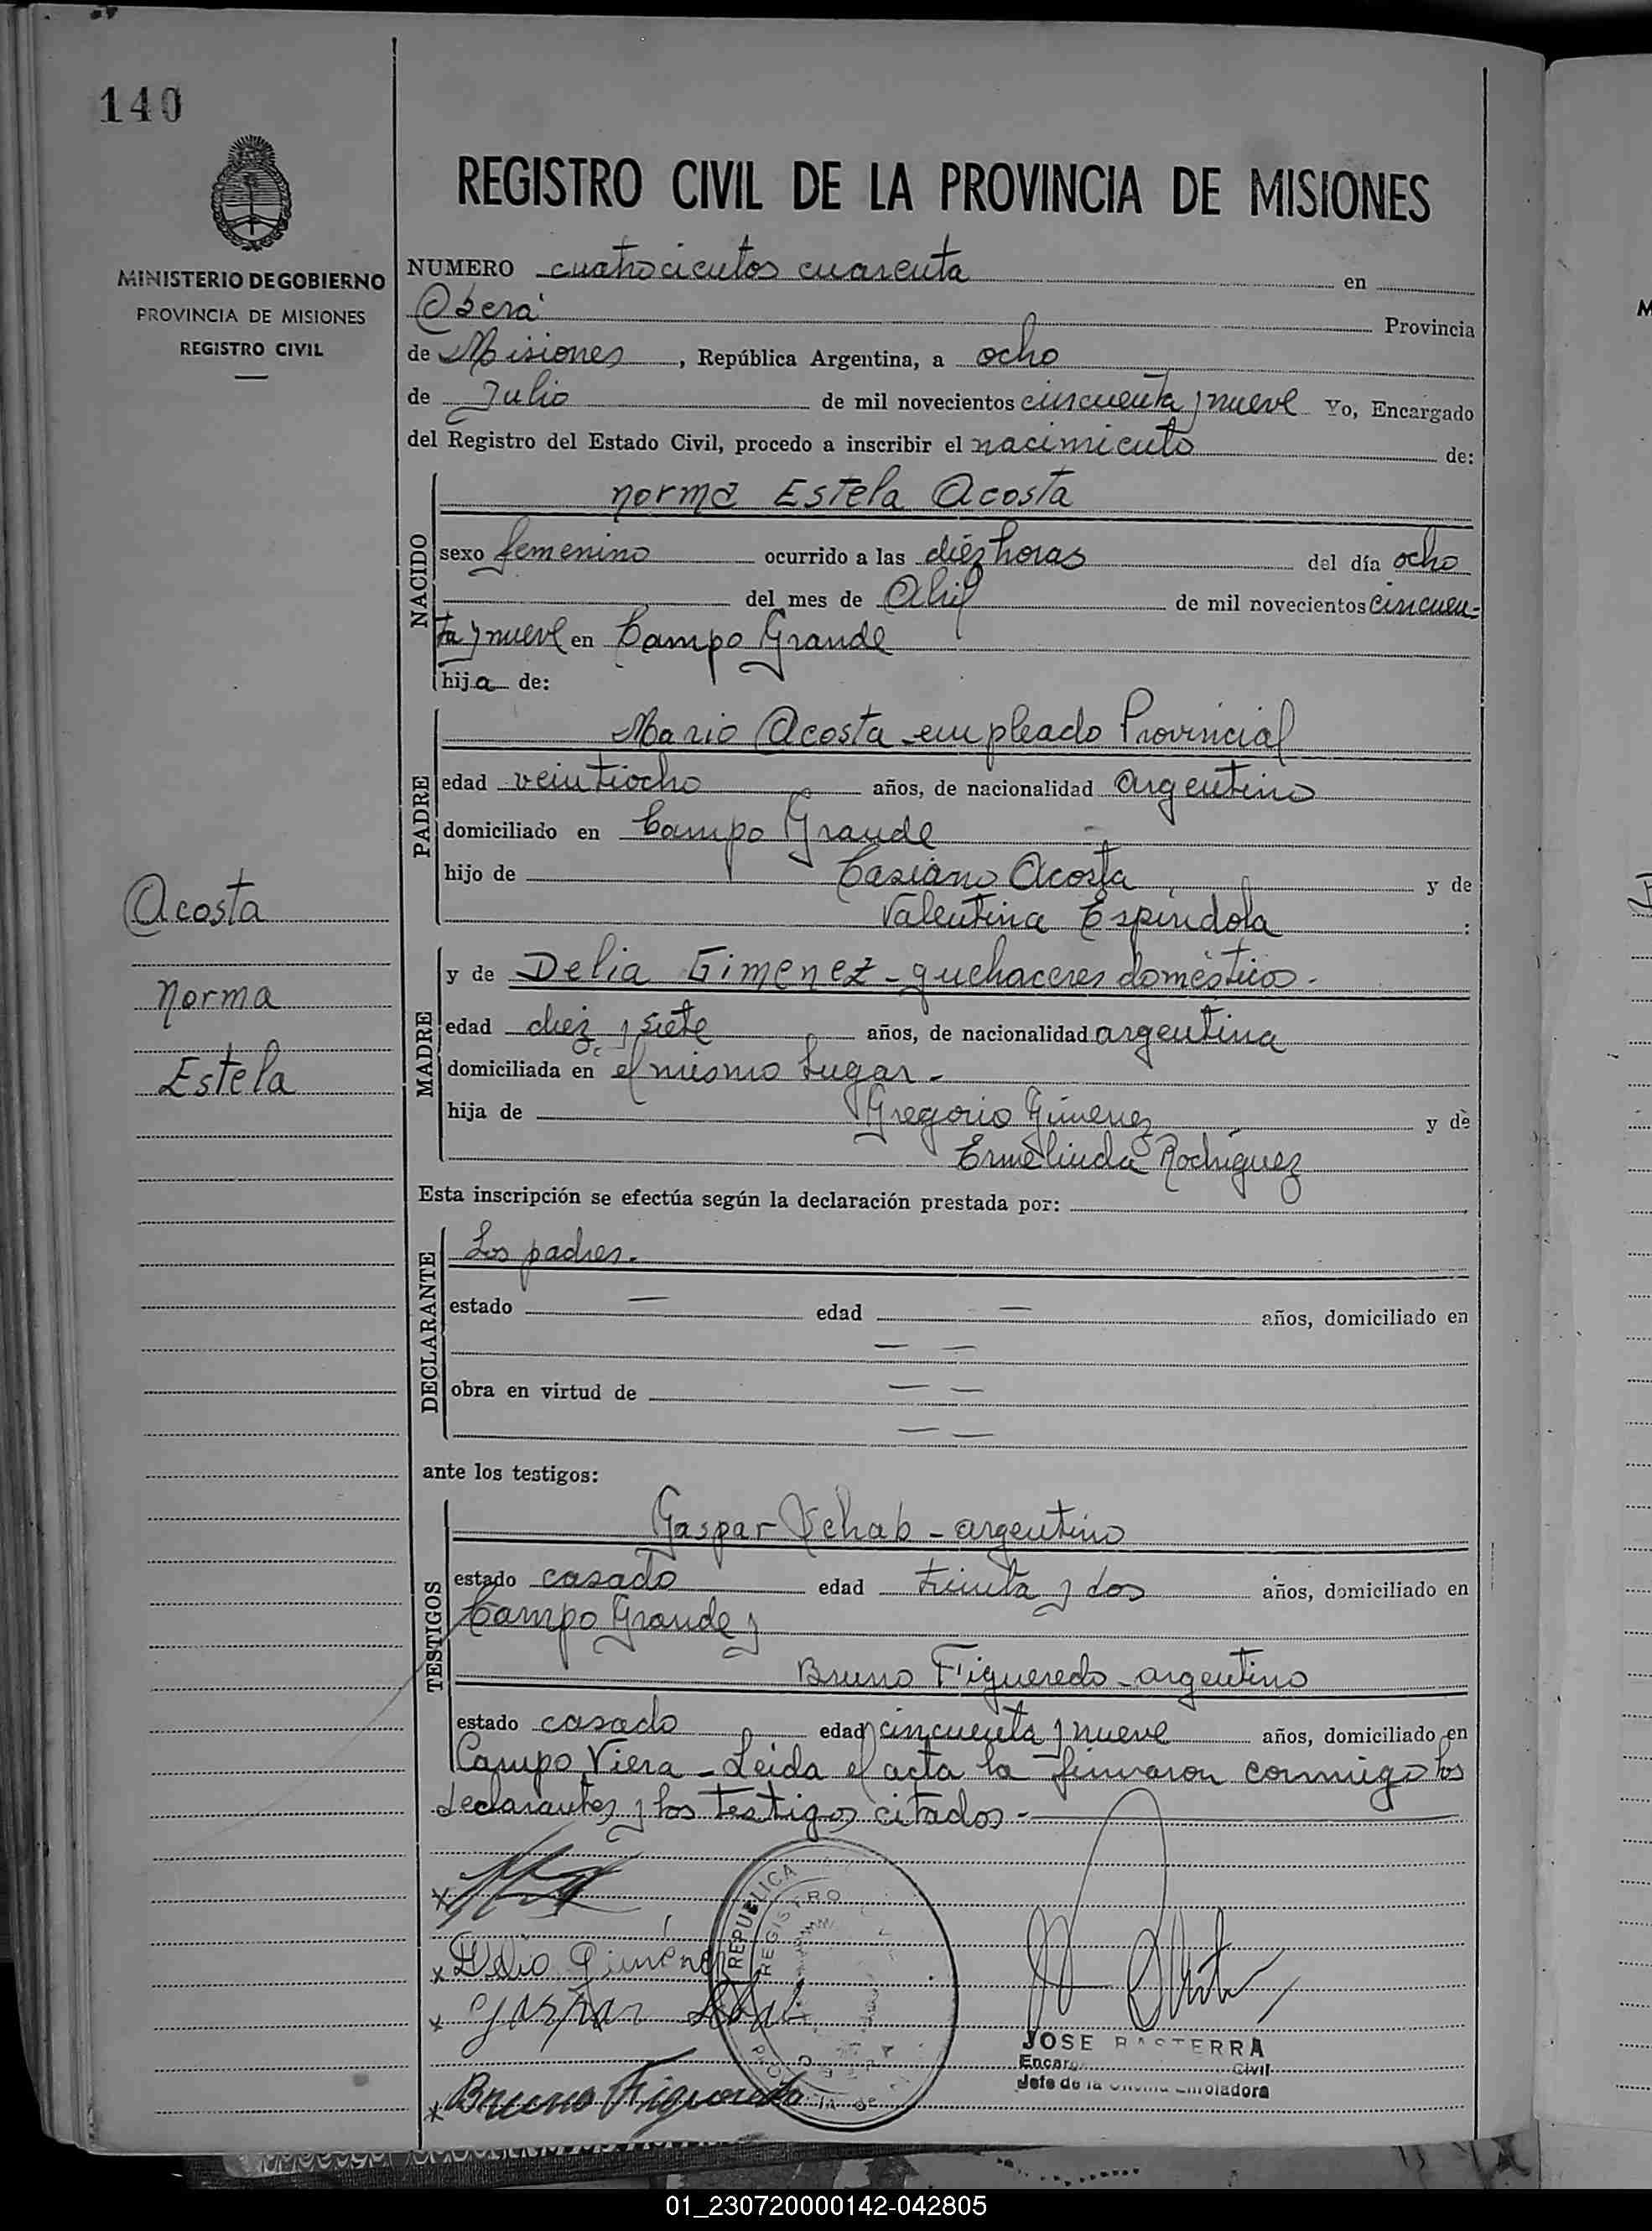 140
MINISTERIO DE GOBIERNO
PROVINCIA DE MISIONES
REGISTRO CIVIL
REGISTRO CIVIL DE LA PROVINCIA DE MISIONES
NUMERO cuatrocientos cuarenta en
Oberá Provincia
de Misiones, República Argentina, a ocho
de Julio de mil novecientos cincuenta y nueve Yo, Encargado
del Registro del Estado Civil, procedo a inscribir el nacimiento de:
NACIDO
Norma Estela Acosta
sexo femenino ocurrido a las diéz horas del día ocho
del mes de Abril de mil novecientos cincuen-
ta y nueve en Campo Grande
hija de:
PADRE
Mario Acosta empleado Provincial
edad veintiocho años, de nacionalidad argentino
domiciliado en Campo Grande
hijo de Casiano Acosta y de
Valentina Espíndola :
Acosta
Norma
Estela
MADRE
y de Delia Gimenez - quehaceres doméstico -
edad diez y siete años, de nacionalidad argentina
domiciliada en el mismo lugar -
hija de Gregorio Gimenez y de
Ermelinda Rodriguez
Esta inscripción se efectúa según la declaración prestada por:
DECLARANTE
Los padres.
estado — edad — años, domiciliado en
— —
obra en virtud de — —
— —
ante los testigos:
TESTIGOS
Gaspar Schab - argentino
estado casado edad treinta y dos años, domiciliado en
Campo Grande y
Bruno Figueredo - argentino
estado casado edad cincuenta y nueve años, domiciliado en
Campo Viera - Leida el acta la firmaron conmigo los
declarantes y los testigos citados -
x
x Delia Giménez
x Gaspar
x Bruno Figueredo
REPUBLICA
REGISTRO
JOSE BASTERRA
Civil
Jefe de la Oficina Enroladora
01_230720000142-042805